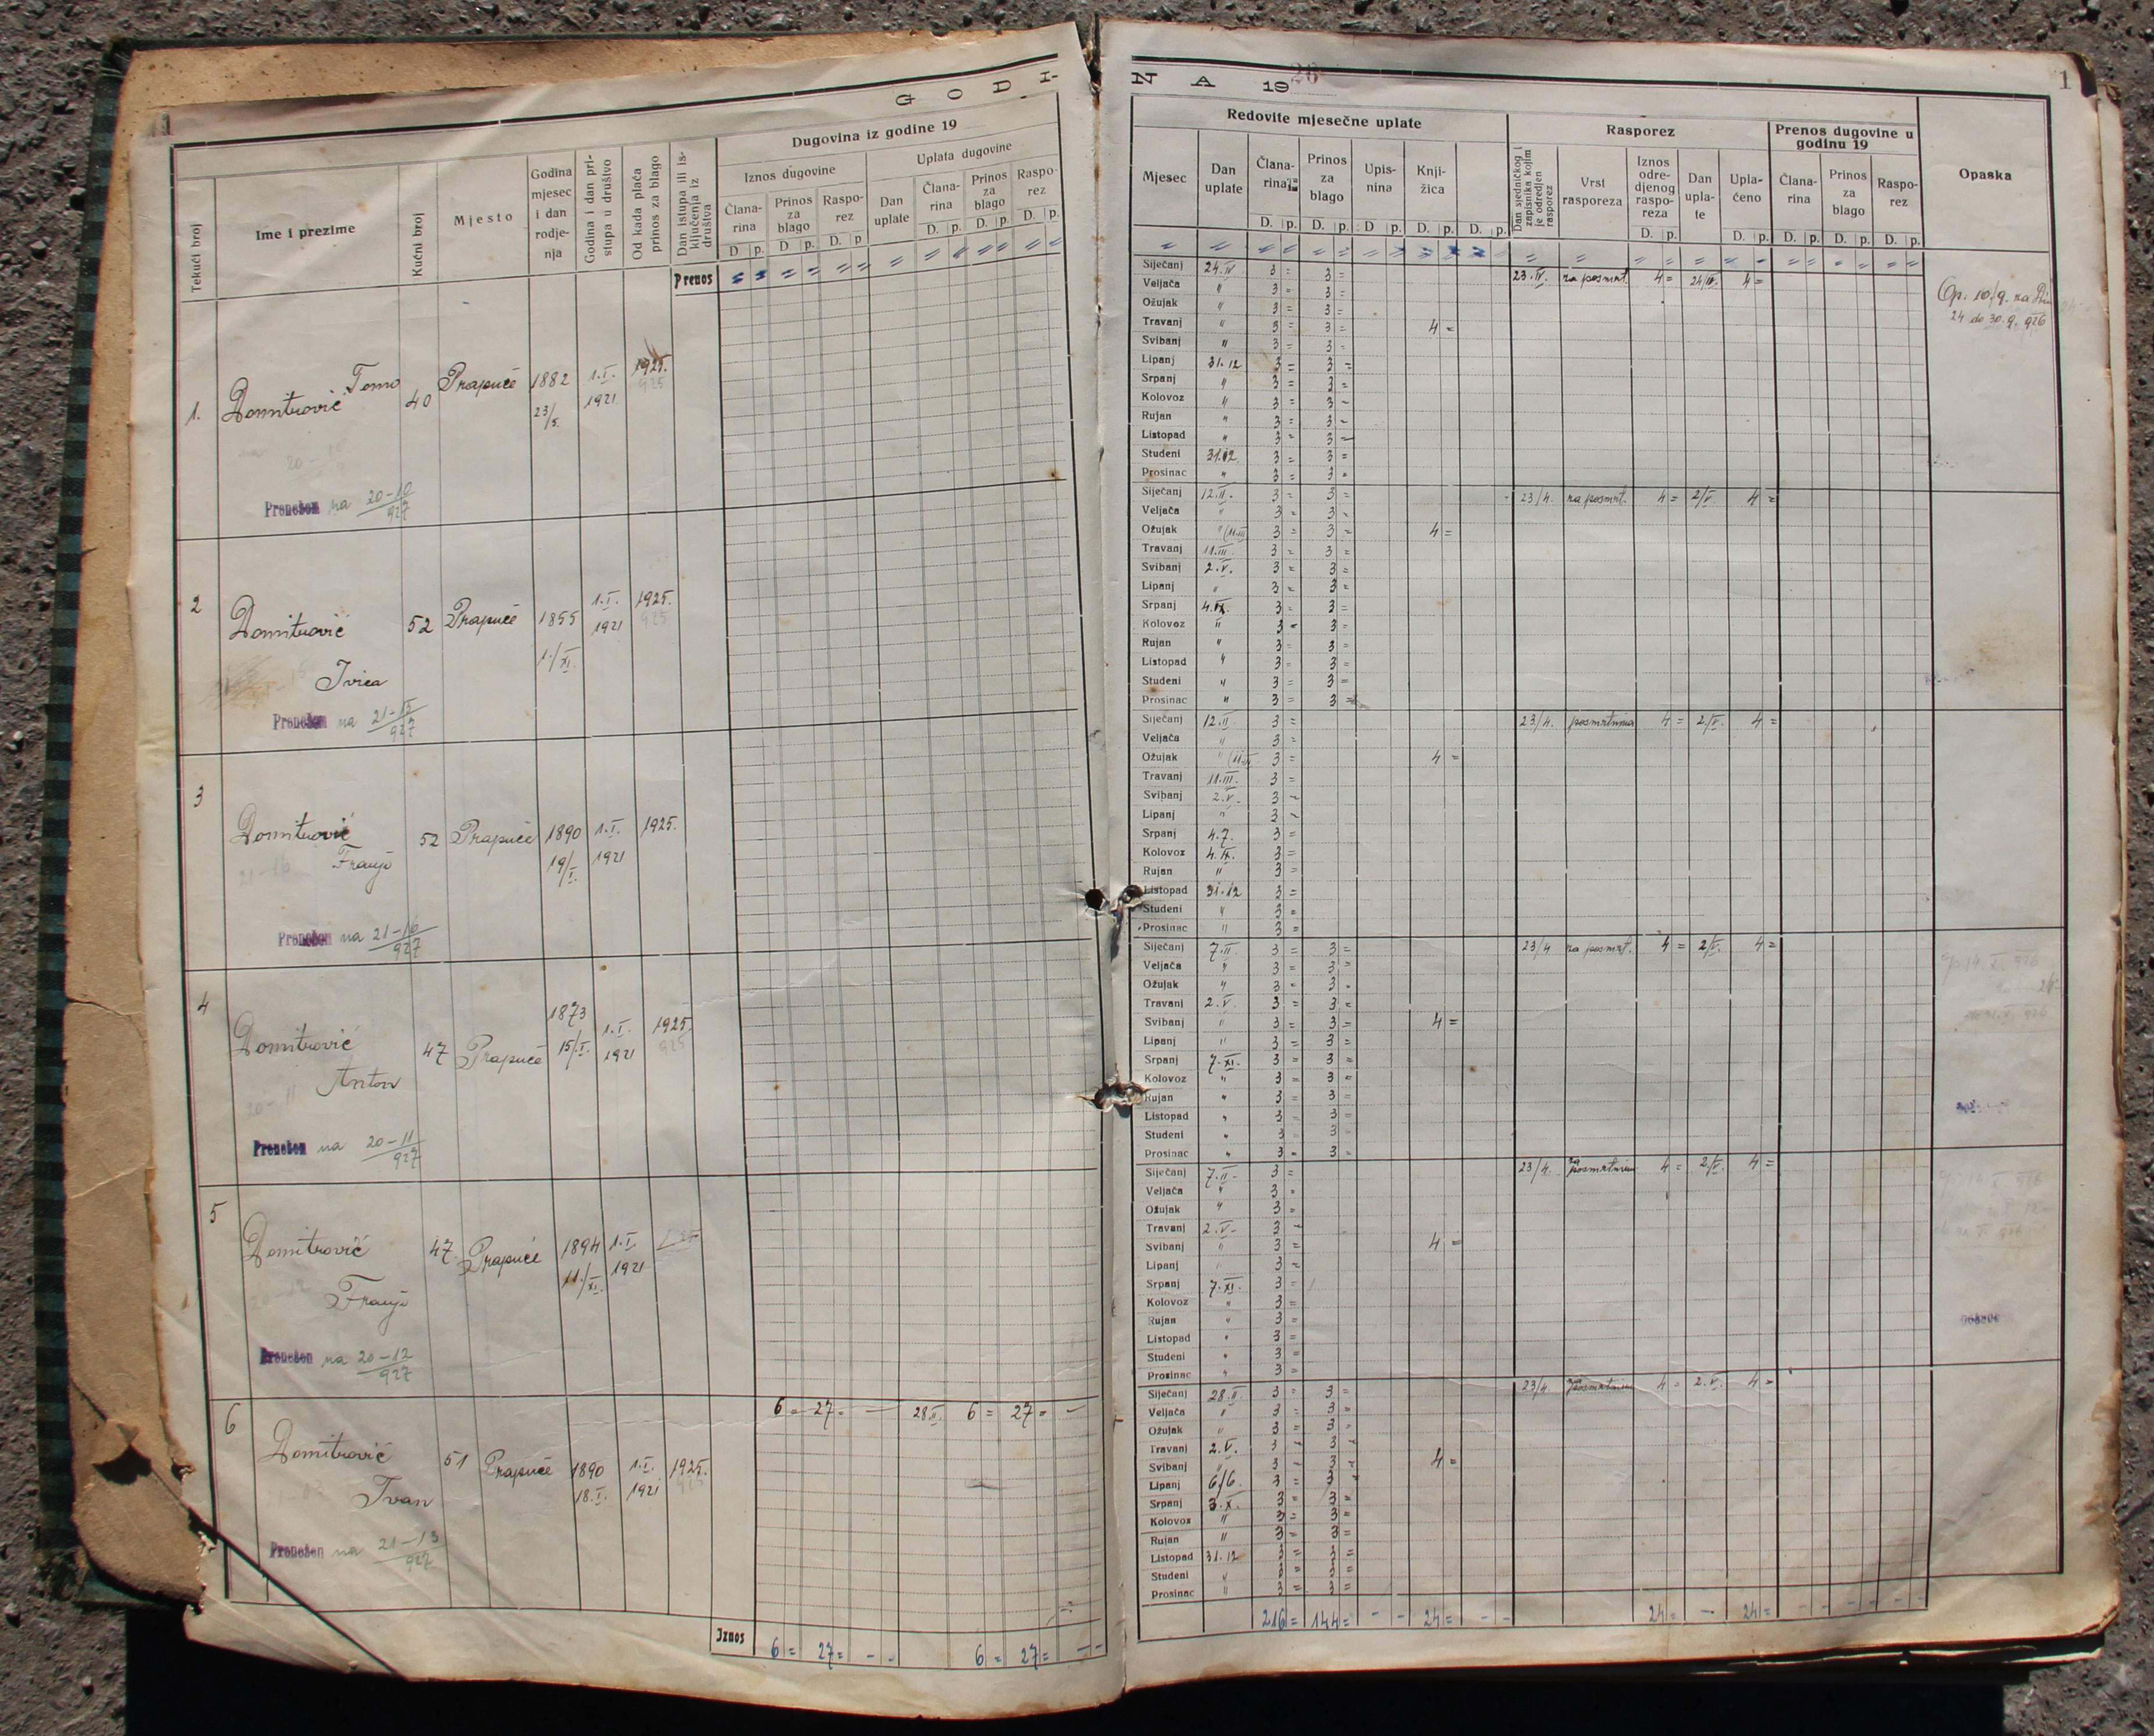 1
G O D I-
Dugovina iz godine 19
Iznos dugovine
Uplata dugovine
Tekući broj
Ime i prezime
Kućni broj
Mjesto
Godina mjesec i dan rodje-nja
Godina i dan pri-stupa u društvo
Od kada plaća prinos za blago
Dan istupa ili is-ključenja iz društva
Člana-rina
Prinos za blago
Raspo-rez
Dan uplate
Člana-rina
Prinos za blago
Raspo-rez
D p. D p. D. p. D. p. D. p. D. p.
Prenos
1. Domitrović Tomo 40 Prapuće 1882 23/5. 1.I. 1921. 1925.
Prenešen na 20-10/927
2 Domitrović Ivica 52 Prapuće 1855 1./XI. 1.I. 1921 1925.
Prenešen na 21-15/927
3 Domitrović Franjo 52 Prapuće 1890 19/I. 1.I. 1921 1925.
Prenešen na 21-16/927
4 Domitrović Anton 47 Prapuće 1873 15/I. 1.I. 1921 1925.
Prenešen na 20-11/927
5 Domitrović Franjo 47. Prapuće 1894 11./XI. 1.I. 1921
Prenešen na 20-12/927
6 Domitrović Ivan 51 Prapuće 1890 18.I. 1.I. 1921 1925. 6 = 27 = — 28.II. 6 = 27 = —
Prenešen na 21-13/927
Iznos 6 = 27 = - - 6 = 27 = - -
N A 1926
1
Redovite mjesečne uplate
Rasporez
Prenos dugovine u godinu 19
Opaska
Mjesec
Dan uplate
Člana-rina
Prinos za blago
Upis-nina
Knji-žica
Dan sjedničkog i zapisnika kojim je odredjen rasporez
Vrst rasporeza
Iznos odre-djenog raspo-reza
Dan upla-te
Upla-ćeno
Člana-rina
Prinos za blago
Raspo-rez
D. p. D. p. D p. D. p. D. p. D. p. D. p. D. p. D. p. D. p.
Siječanj 24.IV. 3 = 3 = 23.IV. za posmrt. 4 = 24/IV. 4 =
Op. 10/9. na
24 do 30.9. 926
Veljača " 3 = 3 =
Ožujak " 3 = 3 =
Travanj " 3 = 3 = 4 =
Svibanj " 3 = 3 =
Lipanj 31.12 3 = 3 =
Srpanj " 3 = 3 =
Kolovoz " 3 = 3 =
Rujan " 3 = 3 =
Listopad " 3 = 3 =
Studeni 31.12 3 = 3 =
Prosinac " 3 = 3 =
Siječanj 12.II. 3 = 3 = 23/4. za posmrt. 4 = 2/V. 4 =
Veljača " 3 = 3 =
Ožujak " (11.III 3 = 3 = 4 =
Travanj 11.III. 3 = 3 =
Svibanj 2.V. 3 = 3 =
Lipanj " 3 = 3 =
Srpanj 4.IX. 3 = 3 =
Kolovoz " 3 = 3 =
Rujan " 3 = 3 =
Listopad " 3 = 3 =
Studeni " 3 = 3 =
Prosinac " 3 = 3 =
Siječanj 12.II. 3 = 23/4. posmrtnina 4 = 2/V. 4 =
Veljača " 3 =
Ožujak " (11.III 3 = 4 =
Travanj 11.III. 3 =
Svibanj 2.V. 3 =
Lipanj " 3 =
Srpanj 4.7. 3 =
Kolovoz 4.IX. 3 =
Rujan " 3 =
Listopad 31.12 3 =
Studeni " 3 =
Prosinac " 3 =
Siječanj 7.II. 3 = 3 = 23/4 za posmrt. 4 = 2/V. 4 =
Veljača " 3 = 3 =
Ožujak " 3 = 3 =
Travanj 2.V. 3 = 3 =
Svibanj " 3 = 3 = 4 =
Lipanj " 3 = 3 =
Srpanj 7.XI. 3 = 3 =
Kolovoz " 3 = 3 =
Rujan " 3 = 3 =
Listopad " 3 = 3 =
Studeni " 3 = 3 =
Prosinac " 3 = 3 =
Siječanj 7.II. 3 = 23/4. za posmrtninu 4 = 2/V. 4 =
Veljača " 3 =
Ožujak " 3 =
Travanj 2.V. 3 =
Svibanj " 3 = 4 =
Lipanj " 3 =
Srpanj 7.XI. 3 =
Kolovoz " 3 =
Rujan " 3 =
Listopad " 3 =
Studeni " 3 =
Prosinac " 3 =
Siječanj 28.II. 3 = 3 = 23/4. za posmrtninu 4 = 2.V. 4 =
Veljača " 3 = 3 =
Ožujak " 3 = 3 =
Travanj 2.V. 3 = 3 =
Svibanj " 3 = 3 = 4 =
Lipanj 6/6. 3 = 3 =
Srpanj 3.X. 3 = 3 =
Kolovoz " 3 = 3 =
Rujan " 3 = 3 =
Listopad 31.12 3 = 3 =
Studeni " 3 = 3 =
Prosinac " 3 = 3 =
216 = 144 = - - 24 = - - 24 = — 24 = - - - - - -